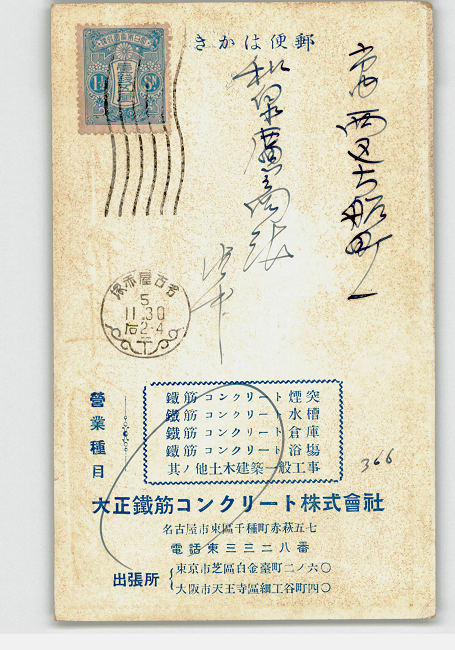 郵便はかき
市西区古船町一
和泉薫商店
1½ Sn
名古屋赤塚
5
11.30
后2-4
営業種目
鐵筋コンクリート煙突
鐵筋コンクリート水槽
鐵筋コンクリート倉庫
鐵筋コンクリート浴場
其ノ他土木建築一般工事
366
大正鐵筋コンクリート株式會社
名古屋市東區千種町赤萩五七
電話東三三二八番
出張所
東京市芝區白金臺町二ノ六〇
大阪市天王寺區細工谷町四〇